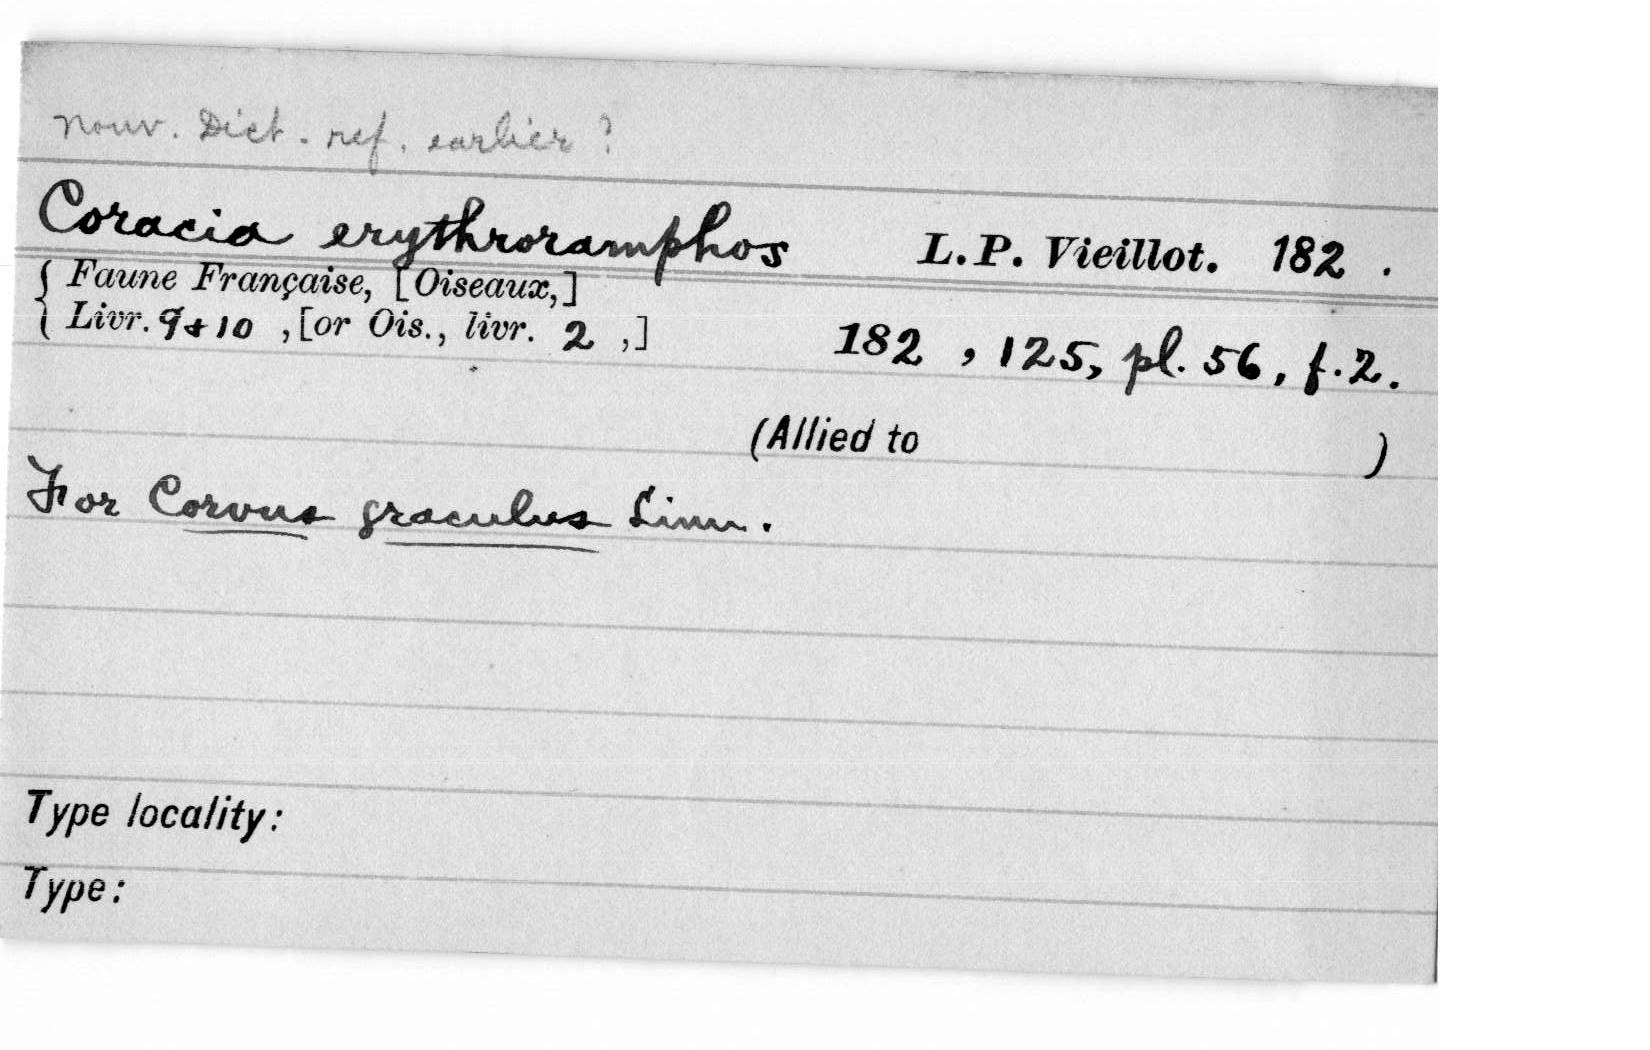 Nouv. Dict. ref. earlier?
Coracia erythroramphos L. P. Vieillot. 182 .
{ Faune Française, [Oiseaux,]
{ Livr. 9 & 10 , [or Ois., livr. 2 ,] 182 , 125, pl. 56, f. 2.
(Allied to )
For Corvus graculus Linn.
Type locality:
Type: